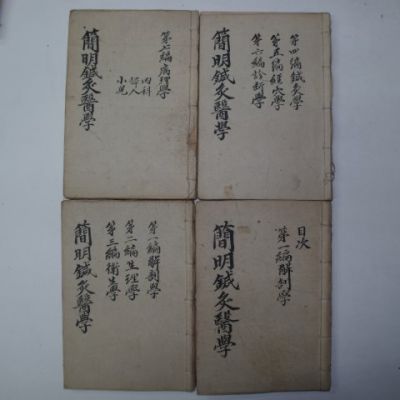 第七編病理學
内科
婦人
小兒
簡明鍼灸醫學
第四編鍼灸學
第五編經穴學
第六編診断學
簡明鍼灸醫學
第一編解剖學
第二編生理學
第三編衛生學
簡明鍼灸醫學
目次
第一編解剖學
簡明鍼灸醫學